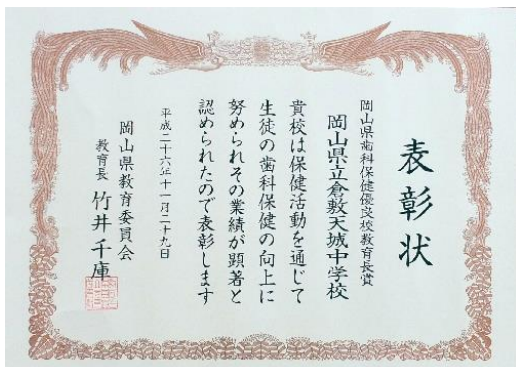 表彰状
岡山県歯科保健優良校教育長賞
岡山県立倉敷天城中学校
貴校は保健活動を通じて
生徒の歯科保健の向上に
努められその業績が顕著と
認められたので表彰します
平成二十六年十一月二十九日
岡山県教育委員会
教育長 竹井千庫